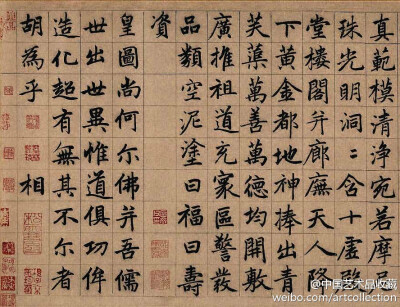 真範模清淨宛若摩尼
珠光明洞〻含十虛啟
堂樓閣并廊廡天人降
下黃金都地神捧出青
芙蕖萬善萬德均開敷
廣推祖道充寰區警發
品類空泥塗曰福曰壽
資
皇圖尚何尔佛并吾儒
世出世異惟道俱功侔
造化超有無其不尔者
胡為乎 相
@中国艺术品收藏
weibo.com/artcollection